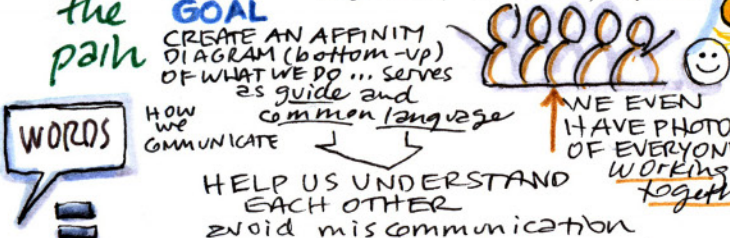 the
path
GOAL
CREATE AN AFFINITY
DIAGRAM (bottom-up)
OF WHAT WE DO ... serves
as guide and
common language
WORDS
HOW
we
COMMUNICATE
HELP US UNDERSTAND
EACH OTHER
avoid miscommunication
WE EVEN
HAVE PHOTO
OF EVERYON
working
togeth